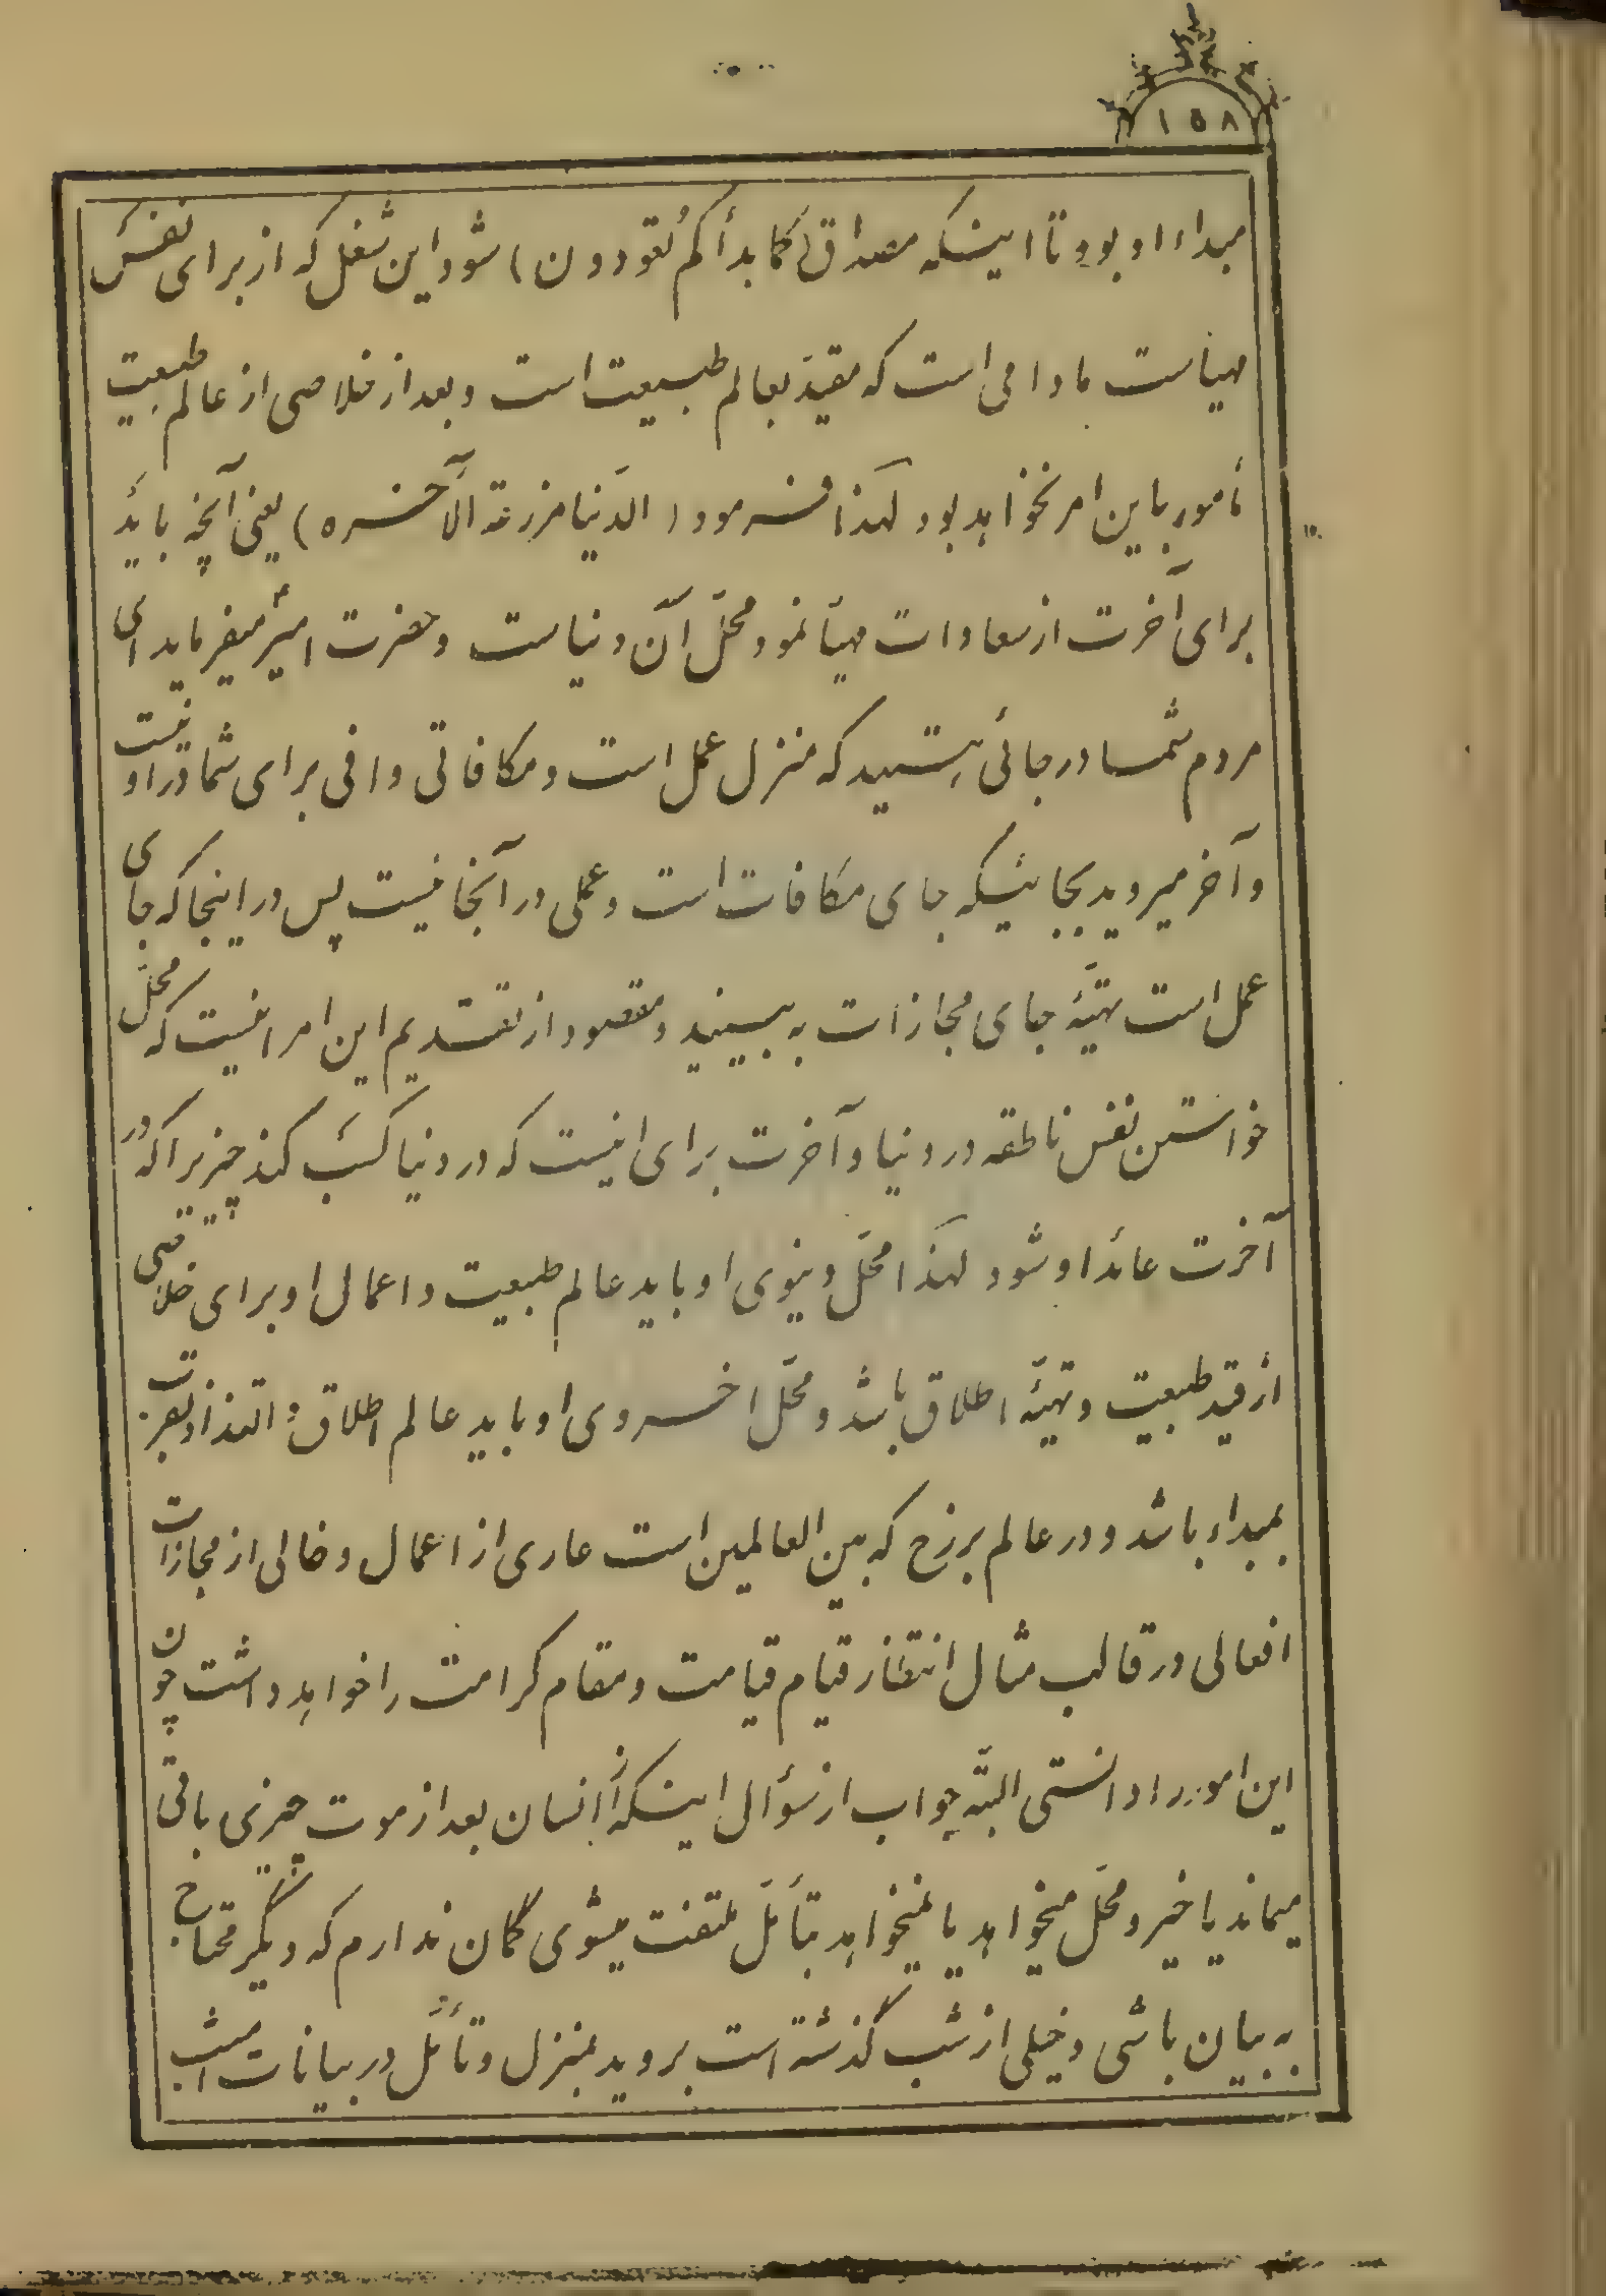 ۱۵۸
مبداء او بود تا اینکه مصداق (کما بدأکم تعودون) شود این شغل که از برای نفس
مهیاست مادامی است که مقید بعالم طبیعت است و بعد از خلاصی از عالم طبیعت
مأمور باین امر نخواهد بود لهذا فرمود (الدنیا مزرعة الآخره) یعنی آنچه باید
برای آخرت از سعادات مهیا نمود محل آن دنیاست و حضرت امیر میفرماید ای
مردم شما در جائی هستید که منزل عمل است و مکافاتی وافی برای شما در او نیست
و آخر میروید بجائیکه جای مکافات است و عملی در آنجا نیست پس در اینجا که جای
عمل است تهیّهٔ جای مجازات به بینید و مقصود از تقدیم این امر اینست که محل
خواستن نفس ناطقه در دنیا و آخرت برای اینست که در دنیا کسب کند چیزیرا که در
آخرت عائد او شود لهذا محل دنیوی او باید عالم طبیعت و اعمال او برای خلاصی
از قید طبیعت و تهیّهٔ اطلاق باشد و محل اخروی او باید عالم اطلاق و التذاذ بقربت
بمبداء باشد و در عالم برزخ که بین العالمین است عاری از اعمال و خالی از مجازات
افعالی در قالب مثال انتظار قیام قیامت و مقام کرامت را خواهد داشت چون
این امور را دانستی البتّه جواب از سؤال اینکه آیا انسان بعد از موت چیزی باقی
میماند یا خیر و محل میخواهد یا نمیخواهد بتأمّل ملتفت میشوی گمان ندارم که دیگر محتاج
به بیان باشی و خیلی از شب گذشته است بروید بمنزل و تأمّل در بیانات امشب